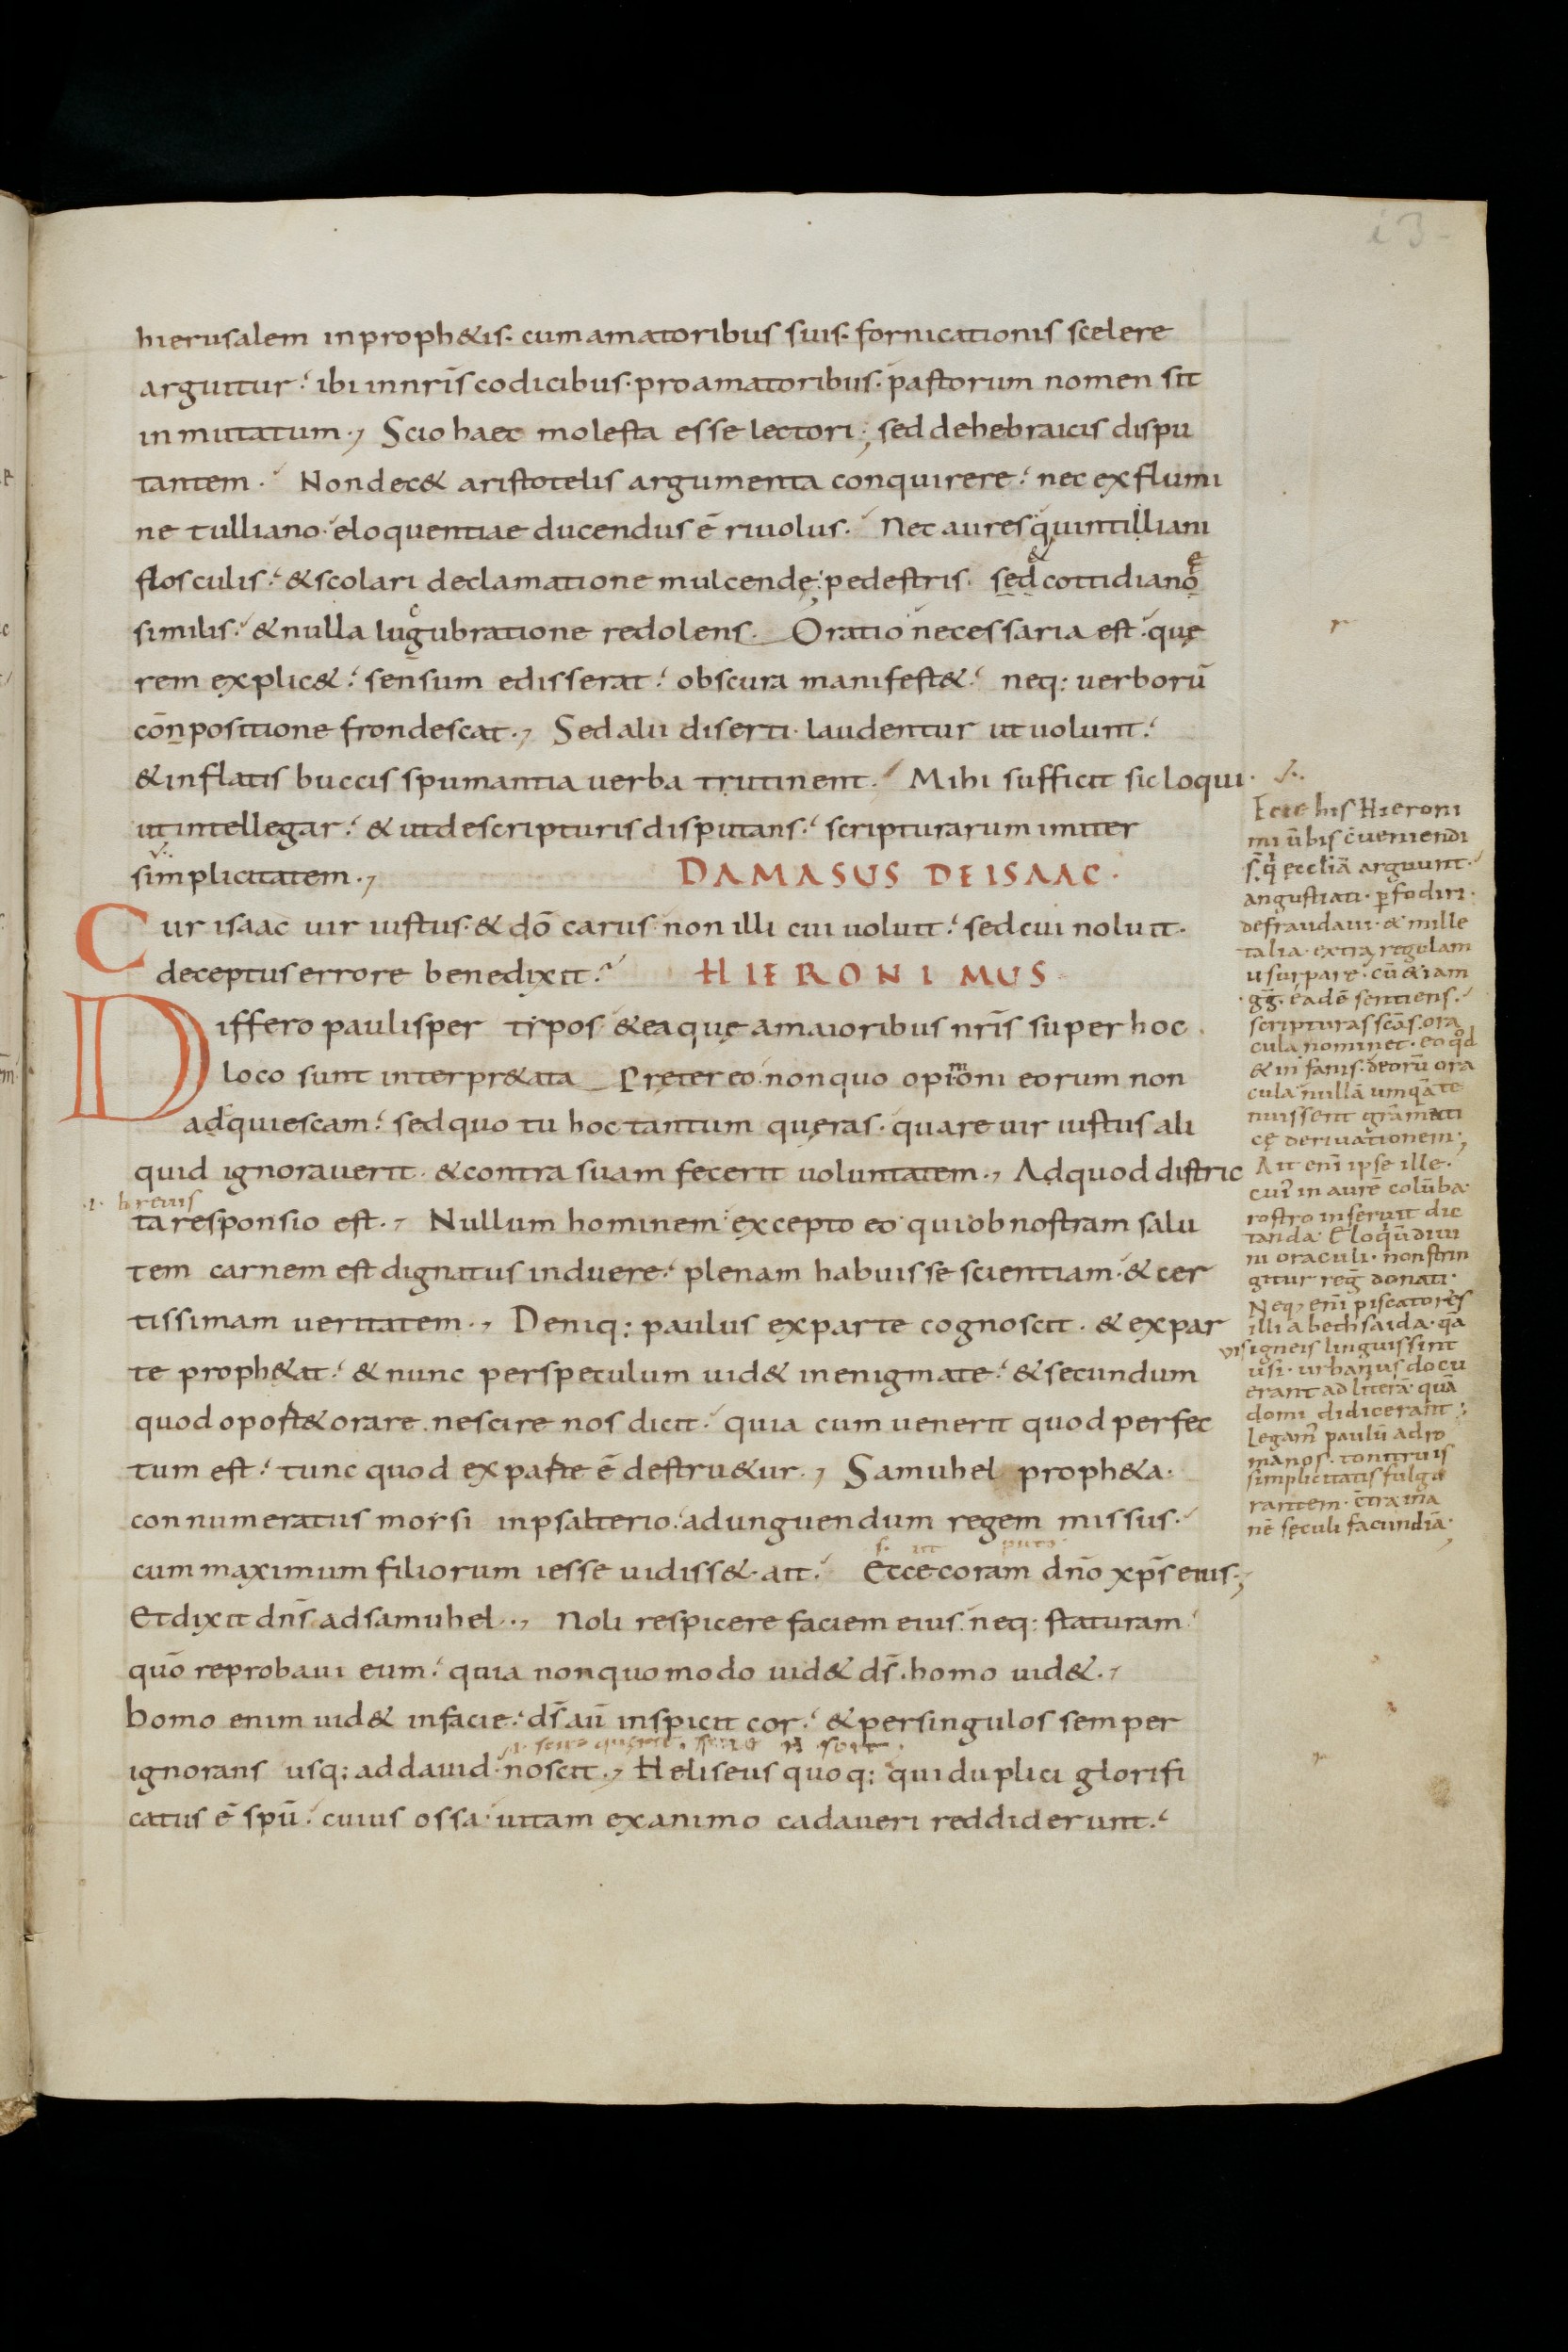 i3-
hierusalem inproph&is· cumamatoribus suis· fornicationis scelere
arguitur· ibi innr̄is codicibus· proamatoribus· pastorum nomen sit
inmutatum·, Scio haec molesta esse lectori; sed dehebraicis dispu
tantem· Nondec& aristotelis argumenta conquirere· nec exflumi
ne tulliano· eloquentiae ducendus ē riuolus· Nec aures quintilliani
flosculis· &scolari declamatione mulcendę· pedestris· sed cottidiano
&
ę
similis· &nulla lugubratione redolens· Oratio necessaria est· quę
c
rem explic&· sensum edisserat· obscura manifest&· neq: uerborū
cōnpositione frondescat·, Sed alii diserti· laudentur ut uolunt·
&inflatis buccis spumantia uerba trutinent· Mihi sufficit sic loqui·
ut intellegar· & ut descripturis disputans· scripturarum imiter
simplicitatem·,
DAMASUS DEISAAC·
Cur isaac uir iustus· & dō carus· non illi cui uoluit· sed cui noluit·
deceptus errore benedixit·
HIERONIMUS
Differo paulisper typos· &ea quę amaioribus nr̄is super hoc
loco sunt interpr&ata Pręter eo· nonquo opinioni eorum non
adquiescam· sed quo tu hoc tantum quęras· quare uir iustus ali
quid ignorauerit· &contra suam fecerit uoluntatem·, Adquod distric
·i· breuis
ta responsio est·, Nullum hominem· excepto eo· qui ob nostram salu
tem carnem est dignatus induere· plenam habuisse scientiam· & cer
tissimam ueritatem·, Deniq: paulus exparte cognoscit· & expar
te proph&at· & nunc perspeculum uid& inenigmate· & secundum
quod oport& orare· nescire nos dicit· quia cum uenerit quod perfec
tum est· tunc quod exparte ē destru&ur·, Samuhel proph&a·
connumeratus morsi inpsalterio· adunguendum regem missus·
cum maximum filiorum iesse uidiss&· ait· Etce coram dn̄o xp̄s eius;
s· ut puto
Etdixit dn̄s adsamuhel·, Noli respicere faciem eius· neq: staturam·
quō reprobaui eum· quia nonquomodo uid& ds̄· homo uid&·,
homo enim uid& infacie· ds̄ aū inspicit cor· & persingulos semper
ignorans usq: addauid· noscit·, Heliseus quoq: qui duplici glorifi
catus ē spū· cuius ossa· uitam exanimo cadaueri reddiderunt·
Ecce his Hieroni
mi ūbis c̄ueniendi
s̄· q̄ ęcclīa arguunt·
angustiati· pfodiri·
defraudaui· & mille
talia· extra regulam
usurpare· cū & iam
·gg̅· eadē sentiens·
scripturas scās· ora
cula nominet· eo qd
& in fanis· deorū ora
cula nullā umquā te
nuissent grāmati
cę deriuationem·,
Ait enī ipse ille·
cui in aurē colūba·
rostro inseruit dic
tanda· Eloquū diui
ni oraculi· non strin
gitur reg donati·
Neq, enī piscatores
illi abethsaida· q̄a
uisigneis linguis sint
usi· urbanus docu
erant ad literā· quā
domi didicerant;
Legam paulū adro
manos· tonitruis
simplicitatis fulgu
rantem· c̄tra ina
nē sęculi facundiā·